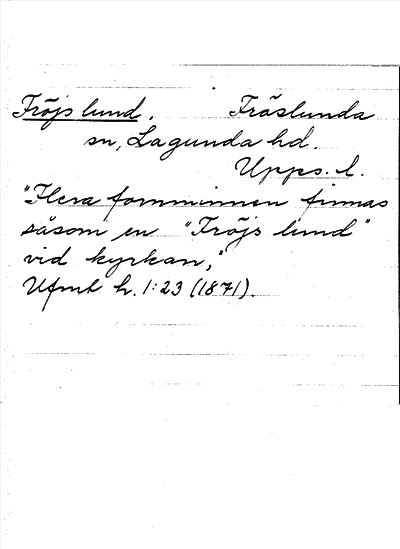 Fröjs lund. Fröslunda
sn, Lagunda hd.
Upps. l.
"Flera fornminnen finnas
såsom en "Fröjs lund"
vid kyrkan,"
Ufmt h. 1:23 (1871).